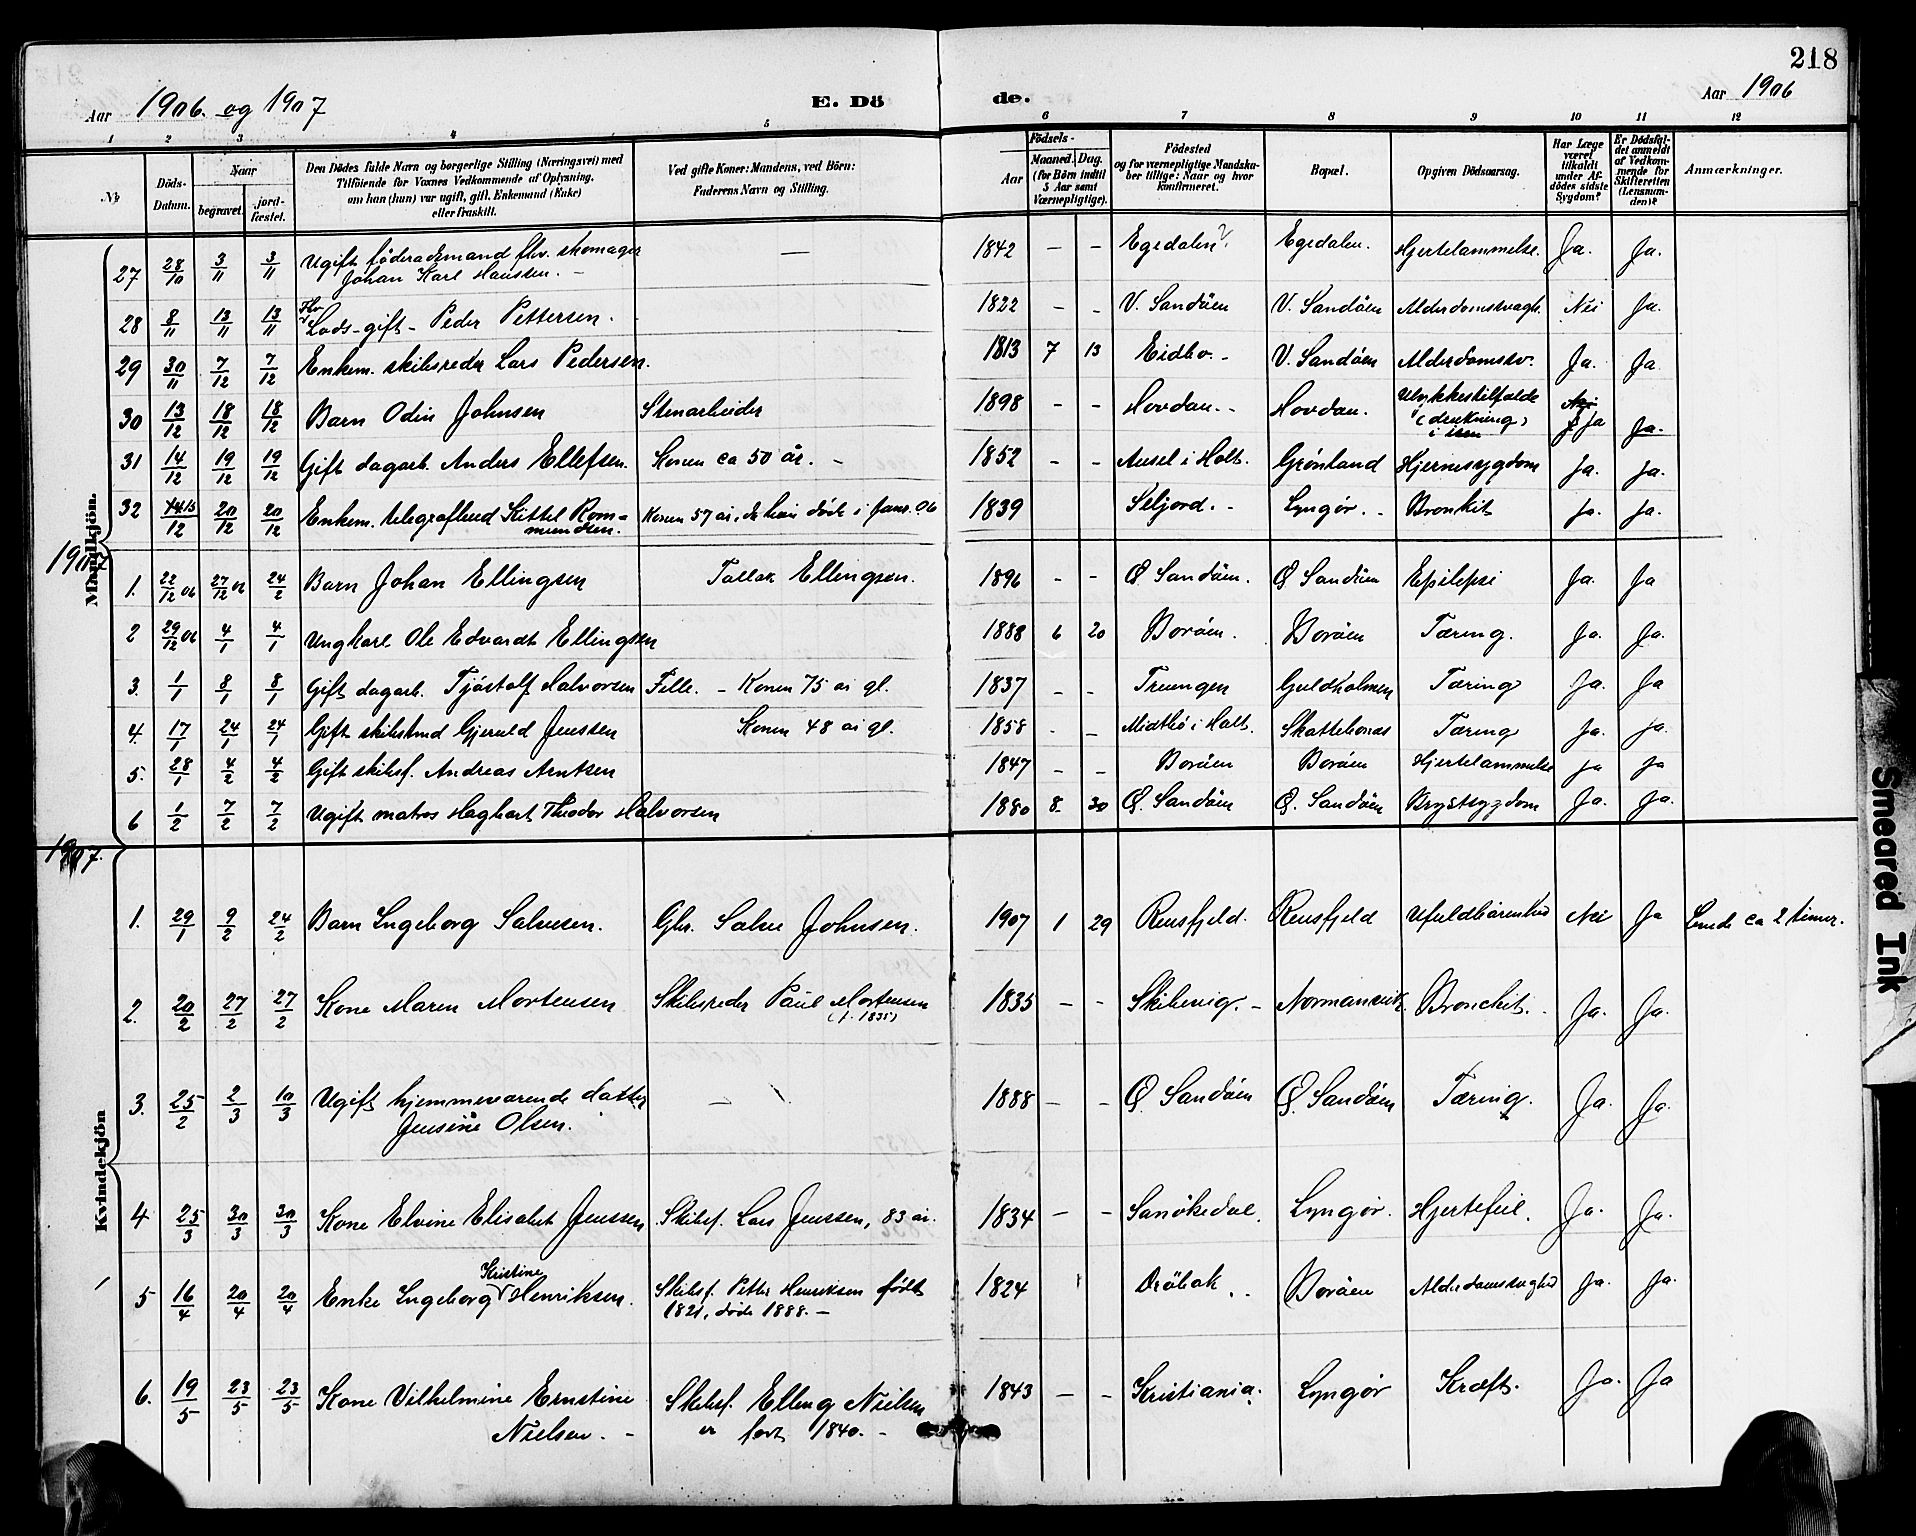 218
Aar 1906. og 1907 E. Dö de. Aar 1906
1 2 3 4 5 6 7 8 9 10 11 12
No Döds-Datum. Naar begravet. jord-fæstet. Den Dödes fulde Navn og borgerlige Stilling (Næringsvei) med Tilföiende for Voxnes Vedkommende af Oplysning, om han (hun) var ugift, gift, Enkemand (Enke) eller fraskilt. Ved gifte Koner: Mandens, ved Börn: Faderens Navn og Stilling. Födsels- Aar Maaned. Dag. (for Börn indtil 5 Aar samt Værnepligtige). Födested og for værnepligtige Mandskaber tillige: Naar og hvor konfirmeret. Bopæl. Opgiven Dödsaarsag. Har Læge været tilkaldt under Afdödes sidste Sygdom? Er Dödsfaldet anmeldt af Vedkommende for Skifteretten (Lensmanden)? Anmærkninger.
Mandkjön.
27 28/10 3/11 3/11 Ugift föderaadsmand fhv. skomager Johan Karl Hanssen. - — 1842 - - Egedalen?. Egedalen. Hjertelammelse. Ja. Ja.
28 8/11 13/11 13/11 Fhv. Lods - gift - Peder Pettersen. 1822 - - V. Sandöen V. Sandöen Alderdomssvagh. Nei Ja.
29 30/11 7/12 7/12 Enkem. skibsreder Lars Pedersen. 1813 7 13 Eidbo. - V. Sandöen Alderdomssv. Ja. Ja.
30 13/12 18/12 18/12 Barn Odin Johnsen Stenarbeider 1898 - - Hovdan. - Hovdan. Ulykkestilfælde (drukning) i isen Nei Ja Ja.
31 14/12 19/12 19/12 Gift dagarb. Anders Ellefsen. Konen ca 50 år. - 1852 - - Ausel i Holt. Grönland Hjernesygdom Ja. Ja.
32 15/12 20/12 20/12 Enkem. telegrafbud Kittel Rommundsen. Konen 57 år, da hun döde i Janr. 06 1839 Seljord. - Lyngör. - Bronkit Ja. Ja.
1907
1. 22/12 06 27/12 06 24/2 Barn Johan Ellingsen Tallak Ellingsen. 1896 - - Ø Sandöen. Ø Sandöen Epilepsi Ja. Ja
2 29/12 06 4/1 4/1 Ungkarl Ole Edvardt Ellingsen 1888 6 20 Boröen. Boröen Tæring. Ja. Ja.
3. 1/1 8/1 8/1 Gift dagarb. Tjöstolf Halvorsen Felle. - Konen 75 år gl. 1837 - - Treungen Guldholmen Tæring Ja. Ja
4. 17/1 24/1 24/1 Gift skibstmd Gjeruld Jenssen Konen 48 år gl. 1858 - - Midtbö i Holt. Skottebonæs Tæring Ja. Ja.
5. 28/1 4/2 4/2 Gift skibsf. Andreas Arntsen 1847 - - Boröen Boröen Hjertelammelse Ja Ja
6 1/2 7/2 7/2 Ugift matros Haghart Theodor Halvorsen 1880 8 30 Ø. Sandöen Ø. Sandöen Brystsygdom Ja. Ja.
1907.
Kvindekjön
1. 29/1 9/2 24/2 Barn Ingeborg Salvesen. Gbr. Salve Johnsen. 1907 1 29 Reusfjeld. Reusfjeld Ufuldbårenhed Nei Ja Levede ca 2 timer.
2. 20/2 27/2 27/2 Kone Maren Mortensen Skibsreder Paul Mortensen (f. 1835) 1835 - - Skibevig. - Normansvik. Bronchit. - Ja. Ja.
3. 25/2 2/3 10/3 Ugift hjemmeværende datter Jensine Olsen. - 1888 - - Ø. Sandöen Ø. Sandöen Tæring. Ja. Ja.
4 25/3 30/3 30/3 Kone Elvine Elisabet Jenssen Skibsf. Lars Jenssen, 83 år. 1834 - - Sanökedal. Lyngör. Hjertefeil. Ja. Ja.
5 16/4 20/4 20/4 Enke Ingeborg Kristine Henriksen. Skibsf. Petter Henriksen födt 1821, döde 1888. - 1824 Dröbak. . Boröen Alderdomssvaghed Ja. Ja.
6. 19/5 23/5 23/5 Kone Vilhelmine Ernstine Nielsen. - Skibsf. Elling Nielsen er född 1840. - 1843 - - Kristiania. Lyngör Kræft. Ja. Ja
Smeared Ink